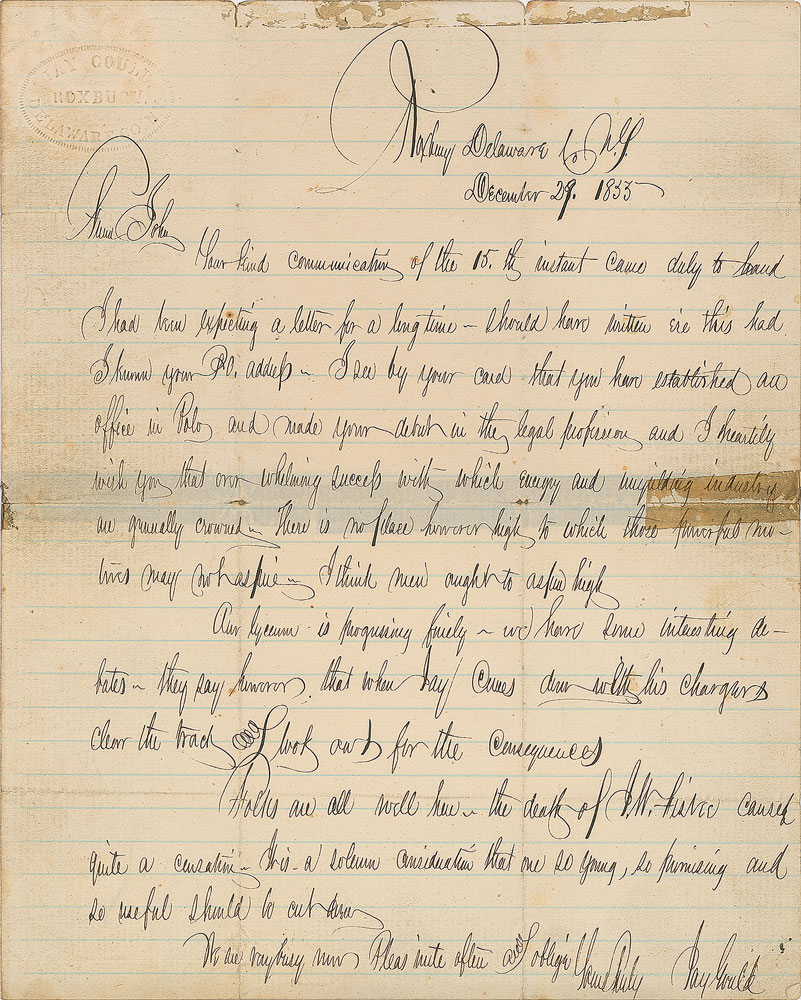 JAY GOULD
ROXBURY
DELAWARE CO N.Y.
Roxbury Delaware Co N.Y.
December 29. 1855
Friend John
Your kind communication of the 15. th instant came duly to hand
I had been expecting a letter for a long time – should have written ere this had
I known your P.O. address – I see by your card that you have established an
office in Polo and made your debut in the legal profession and I heartily
wish you that over whelming success with which energy and unyielding industry
are generally crowned – There is no place however high to which those powerful mo–
tives may not aspire – I think men ought to aspire high
Our Lyceum is progressing finely – we have some interesting de–
bates – they say however, that when Jay comes down with his chargers
clear the track and look out for the consequences
Folks are all well here – the death of J.W. caused
quite a censation – This a solemn consideration that one so young, so promising and
so useful should be cut down
We are very busy now Pleas write often and oblige
Yours Duly Jay Gould